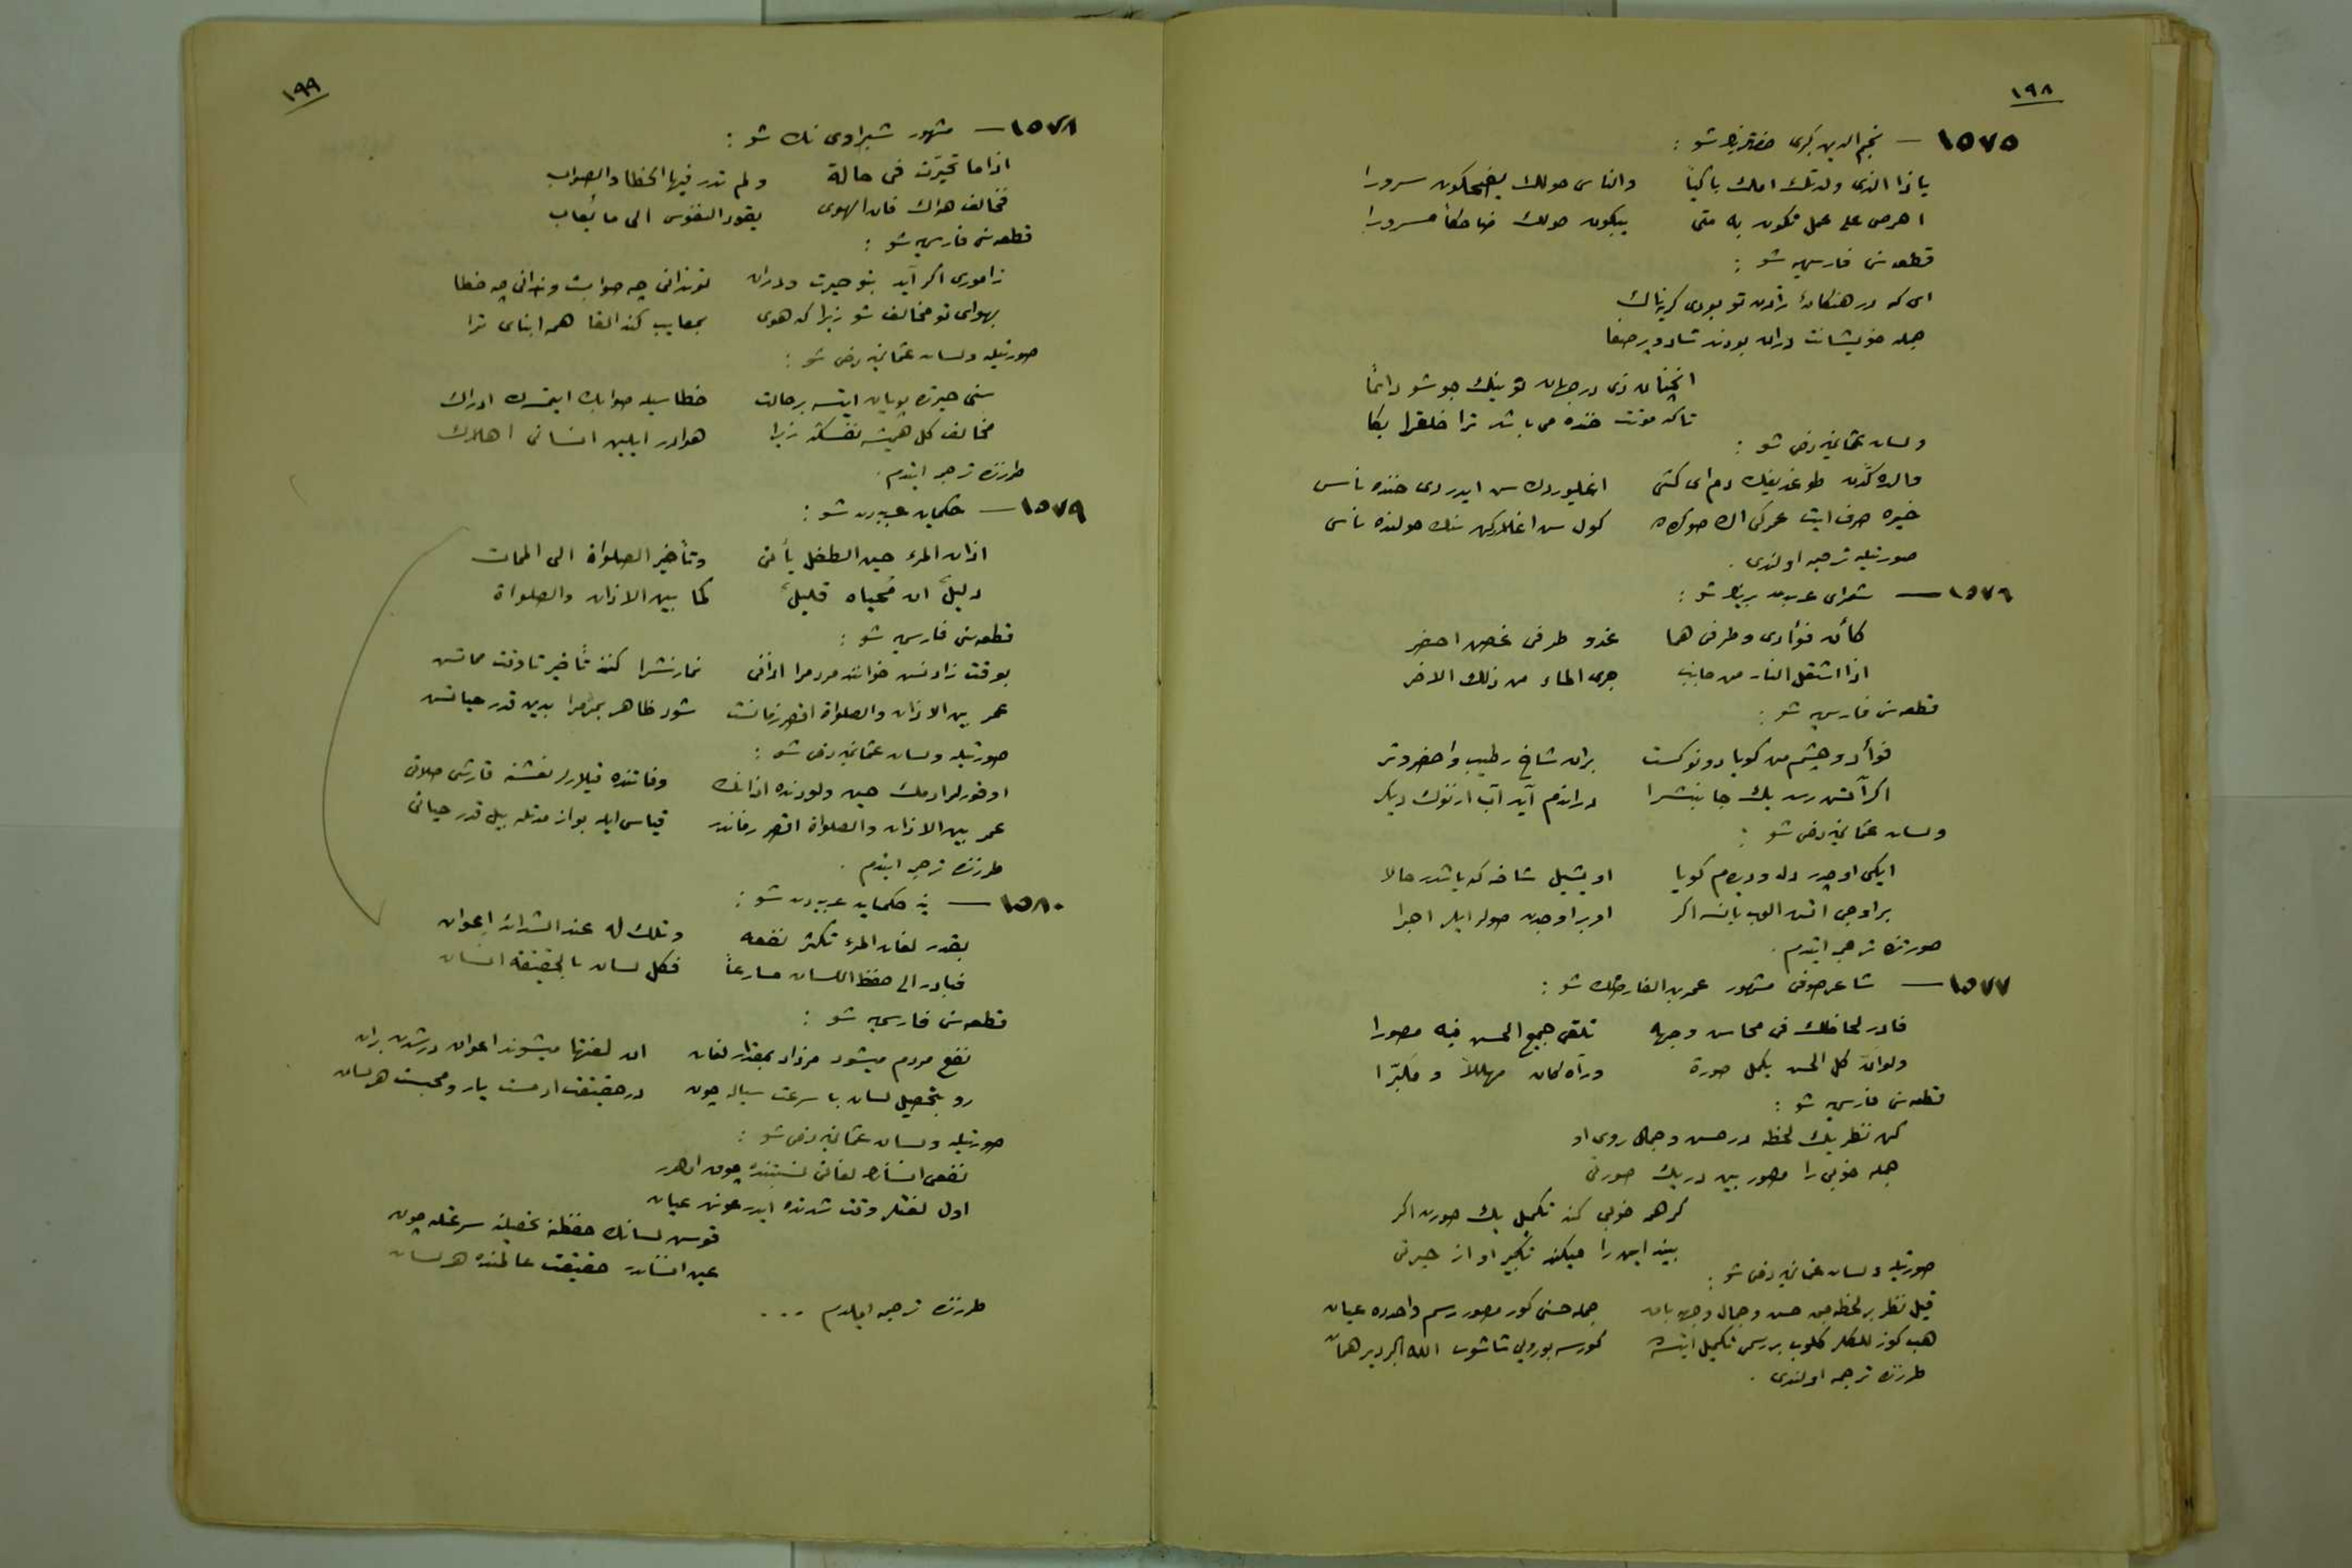 ١٩٨
١٥٧٥ — نجم الدين كبرى حضرتلرينك شو :
ياذا الذى ولدتك امك باكياً والناس حولك يضحكون سرورا
احرص على عمل تكون به متى يبكون حولك ضاحكاً مسرورا
قطعه سنى فارسيه شو :
اى كه در هنكامۀ زادن تو بودى كريه ناك
جمله خويشانت دران بودند شاد و پر صفا
آنچنان زى در جهان تو نيك جو شو دائماً
تاكه موتت خنده مى باشد ترا خلقرا بكا
ولسان عثمانيه دخى شو :
والده كدن طوغديغك دم اى كشى اغليوردك سن ايدردى خنده ناس
خيره صرف ايت عمركى اك صوكره كول سن اغلاركن سنك حولنده ناس
صورتيله ترجمه اولندى .
١٥٧٦ — شعراى عربدن برينك شو :
كأن فؤادى وطرفى هما غدو طرفى غصن اخضر
اذا اشتعل النار من جانب جرى الماء من ذلك الاخر
قطعه سنى فارسيه شو :
فوأد و چشم من كويا دو نوكست بران شاخ رطيب واخضر وتر
اكر آتش رسد يك جانبشرا دراندم آيد آب از نوك ديكر
ولسان عثمانيه دخى شو :
ايكى اوجدر دل وديده م كويا او يشيل شاخه كه ياشدر حالا
بر اوجى آتش الوب يانسه اكر اوبر اوجدن صولر ايلر اجرا
صورتنده ترجمه ايتدم .
١٥٧٧ — شاعر صوفى مشهور عمر بن الفارضك شو :
فادر لحاظك فى محاسن وجهه تلقى جميع الحسن فيه مصورا
ولو ان كل الحسن يكمل صورة ورآه كان مهللاً و مكبّرا
قطعه سنى فارسيه شو :
كن نظر يك لحظه در حسن وجمال روى او
جمله خوبى را مصور بين در يك صورتى
كر همه خوبى كند تكميل يك صورت اكر
بيند اين را ميكند تكبير او از حيرتى
صورتيله ولسان عثمانيه دخى شو :
قيل نظر بر لحظه جق حسن وجمال وجهه باق جمله حسنى كور مصور رسم واحدده عيان
هب كوزللكلر كلوب بر رسمى تكميل ايتسه كورسه بو رويى شاشوب الله اكبر دير همان
طرزنده ترجمه اولندى .
١٩٩
١٥٧٨ — مشهور شبراوى نك شو :
اذا ما تحيّرت فى حالة ولم تدر فيها الخطا والصواب
فخالف هواك فان الهوى يقود النفوس الى ما يُعاب
قطعه سنى فارسيه شو :
ز امورى اكر آيد بتو حيرت ودران تو ندانى چه صوابست وندانى چه خطا
بهواى تو مخالف شو زيرا كه هوى بمعايب كند القا همه ابناى ترا
صورتيله ولسان عثمانيه دخى شو :
سنى حيرتده بويان ايتسه بر حالت خطا سيله صوابك ايتمسك ادراك
مخالف كل هميشه نفسكه زيرا هوادر ايلين انسانى اهلاك
طرزنده ترجمه ايتدم .
١٥٧٩ — حكمايه عربدن شو :
اذان المرء حين الطفل يأتى وتأخير الصلواة الى الممات
دليل ان مُحياه قليل كما بين الاذان والصلواة
قطعه سنى فارسيه شو :
بوقت زادنش خوانند مردمرا اذانى نمازشرا كنند تأخير تا وقت مماتش
عمر بين الاذان والصلواة اقصر زمانست شود ظاهر بمردمرا بدين قدر حياتش
صورتيله ولسان عثمانيه دخى شو :
اوقورلر آدمك حين ولودنده اذانك وفاتنده قيلارلر نعشنه قارشى صلاتى
عمر بين الاذان والصلواة اقصر زماندر قياس ايله بو از مدتله بيل قدر حياتى
طرزنده ترجمه ايتدم .
١٥٨٠ — ينه حكمايه عربدن شو :
بقدر لغات المرء تكثر نفعه وتلك له عند الشدائد اعوان
فبادر الى حفظ اللسان مسارعاً فكل لسان بالحقيقة انسان
قطعه سنى فارسيه شو :
نفع مردم ميشود مزداد بمقدار لغات ان لغتها ميشوند اعوان در شدت بران
رو بتحصيل لسان با سرعت سياله چون در حقيقت آدمست يار ومحبست هر لسان
صورتيله ولسان عثمانيه دخى شو :
نفعى انسانك لغاتى نسبتنده چوق اولور
اول لغتلر وقت شدتده ايدر عونى عيان
قوش لسانك حفظنه تحصيلنه سرعتله چون
عين انساندر حقيقت عالمنده هر لسان
طرزنده ترجمه ايلدم . . .